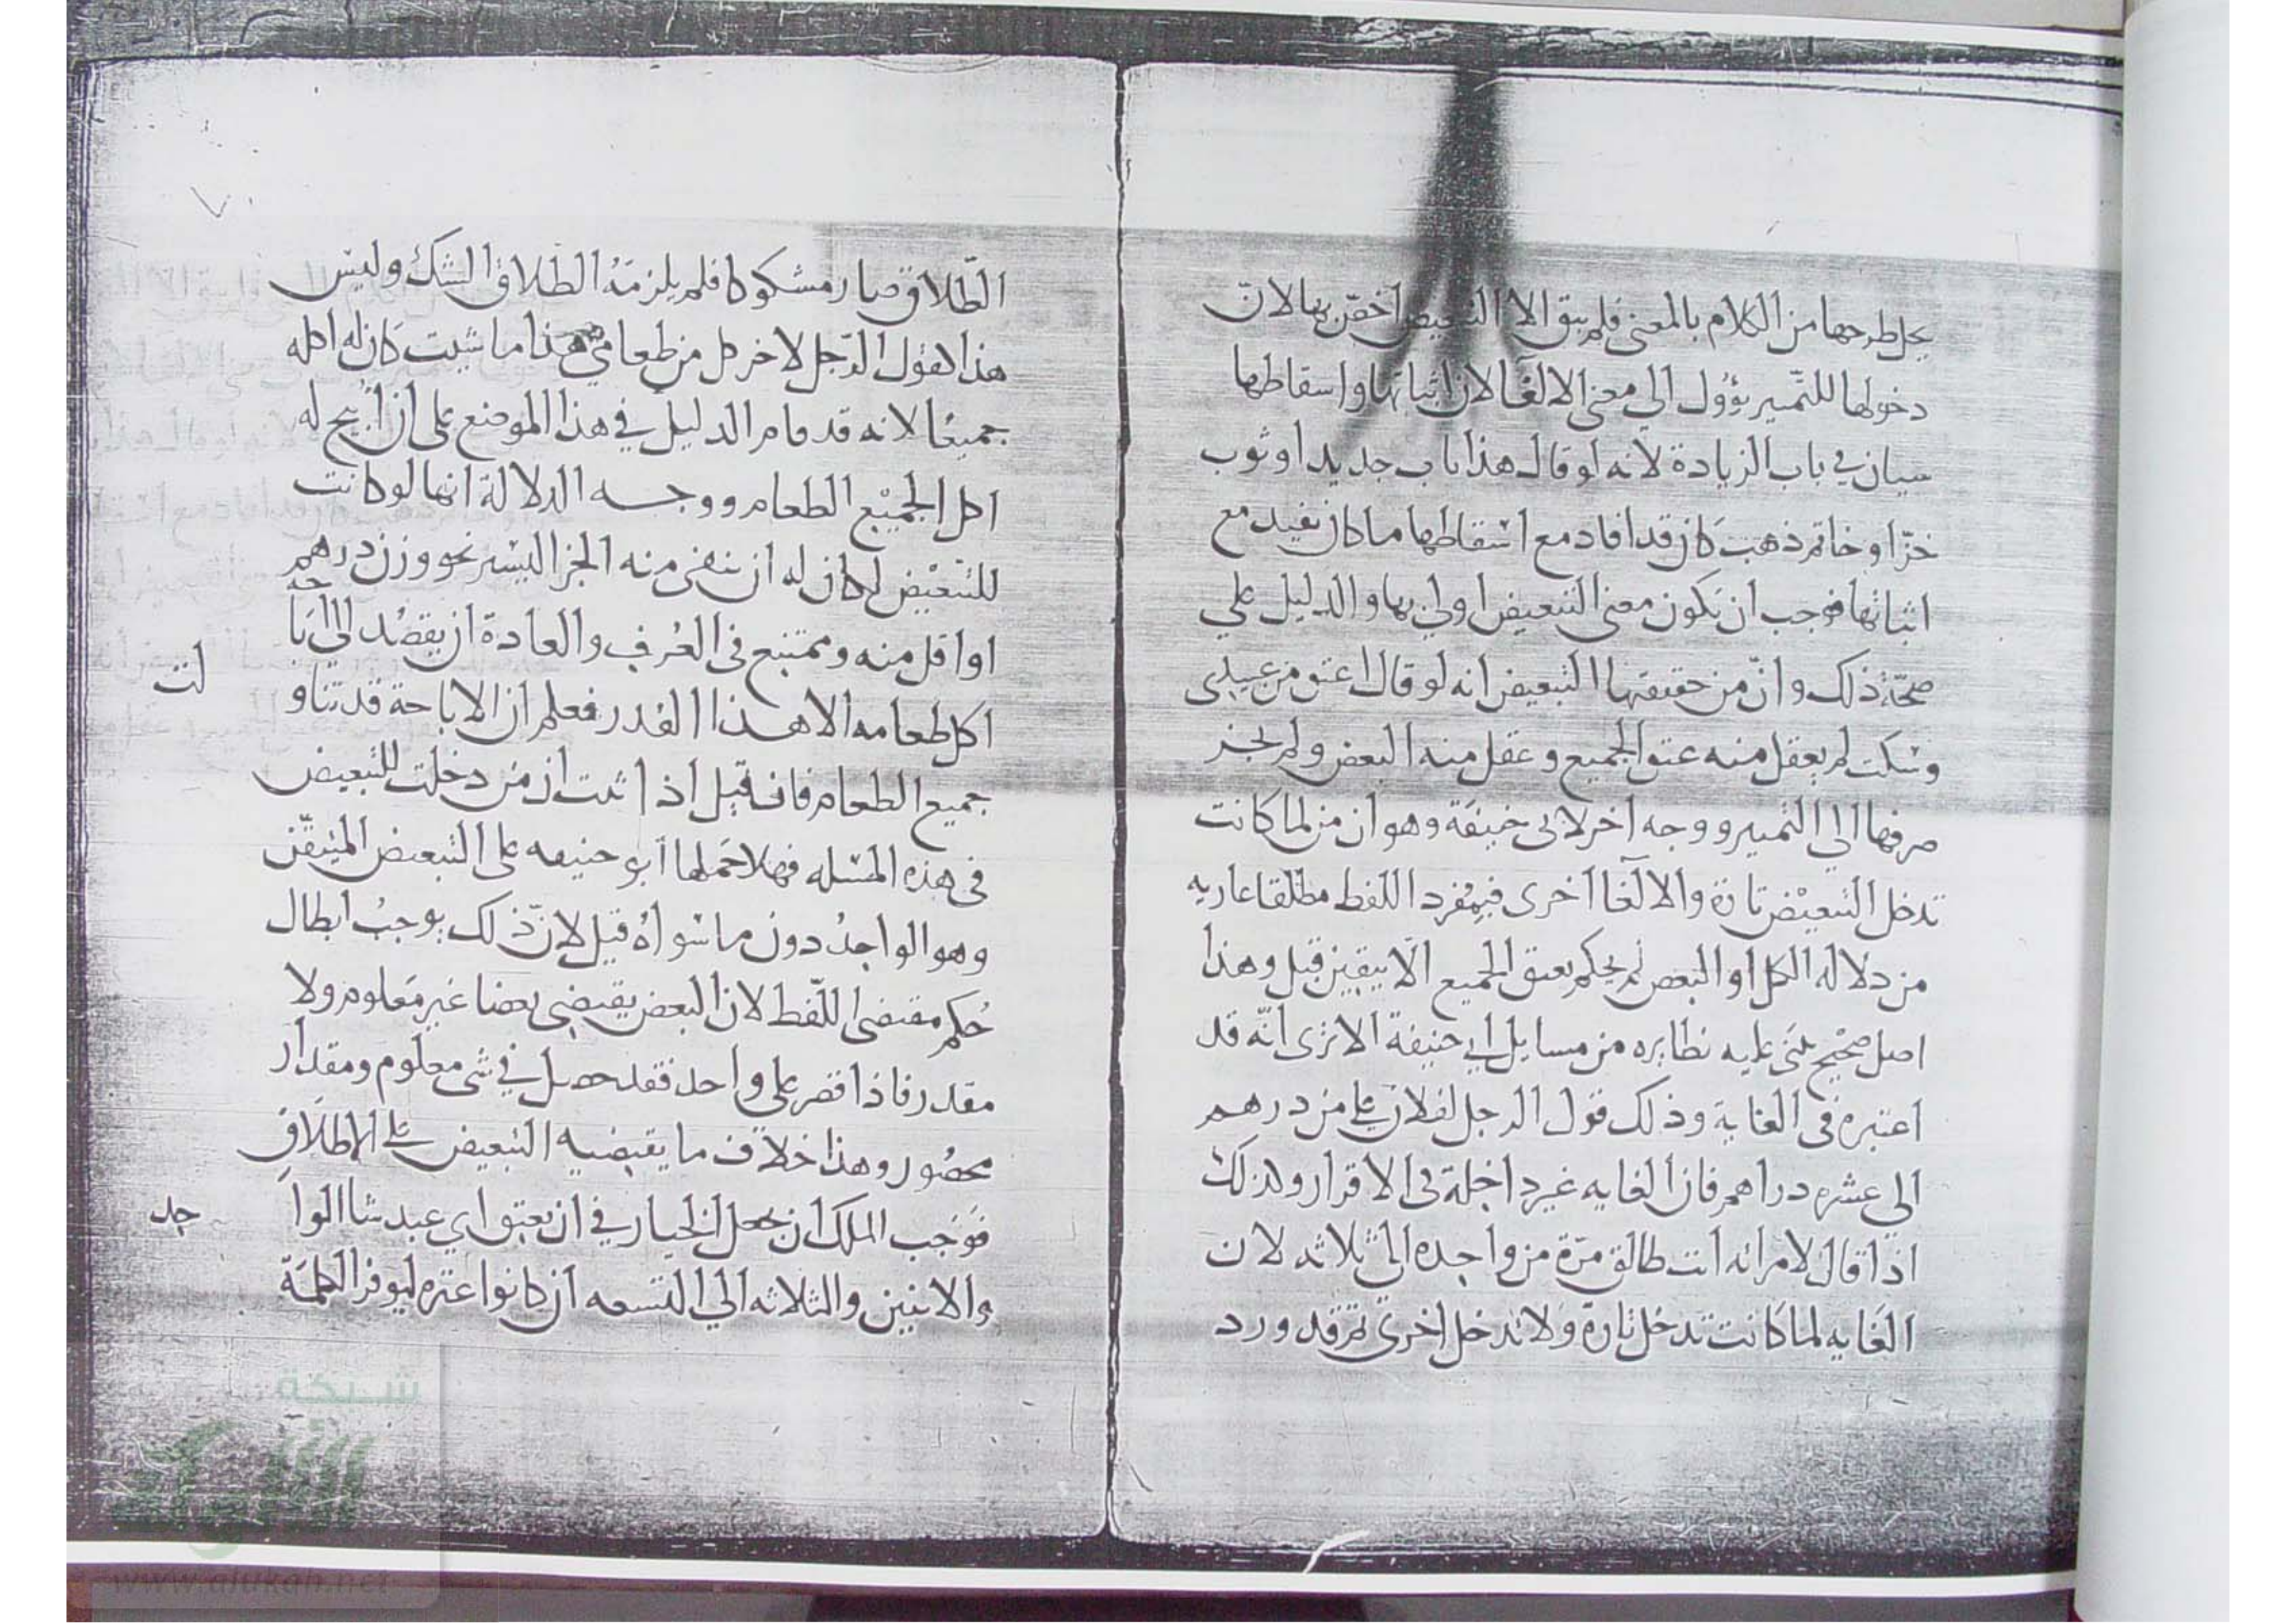 يحل طرحها من الكلام بالمعنى فلم يبق الا التبعيض اخص بها لان
دخولها للتمييز يؤول الي معنى الالغا لان اثباتها واسقاطها
سيان في باب الزيادة لانه لو قال هذا باب جديد او ثوب
خزّ او خاتم ذهب كان قد افاد مع اسقاطها ما كان يفيد مع
اثباتها فوجب ان يكون معنى التبعيض اولي بها والدليل علي
صحّة ذلك وانّ من حقيقتها التبعيض انه لو قال اعتق من عبيدي
وسكت لم يعقل منه عتق الجميع وعقل منه البعض ولم يجز
صرفها الي التمييز ووجه اخر لابي حنيفة وهو ان من لما كانت
تدخل للتبعيض تارة والالغا اخرى فيفرد اللفظ مطلقا عاريه
من دلاله الكل او البعض لم يحكم بعتق الجميع الّا بيقين قيل وهذا
اصل صحيح يبنى عليه نظايره من مسايل ابي حنيفة الا ترى انّه قد
اعتبره فى الغاية وذلك قول الرجل لفلان علي من درهم
الي عشره دراهم فان الغايه غير داخلة فى الاقرار ولذلك
اذا قال لامراته انت طالق مرّة من واحده الي ثلاثه لان
الغايه لما كانت تدخل تارة ولا تدخل اخرى ثم قد ورد
الطّلاق صار مشكوكا فلم يلزمهُ الطلاق الشك وليس
هذا كقول الرّجل لاخر كل من طعامي هذا ما شيت كان له اكله
جميعًا لانه قد قام الدليل في هذا الموضع على ان ابيح له
اكل الجميع الطعام ووجه الدلالة انها لو كانت
للتبعيض لكان له ان ينفى منه الجز اليسير نحو وزن درهم
او اقل منه وممتنع فى العُرف والعادة ان يقصُد الي اباحه
اكل طعامه الا هذا القدر فعلم ان الاباحة قد تناولت
جميع الطعام فان قيل اذا ثبت ان من دخلت للتبعيض
فى هذه المسله فهلا حملها ابو حنيفه على التبعيض المتيقّن
وهو الواحدُ دون ما سواهُ قيل لانّ ذلك يوجبُ ابطال
حُكم مقتضى اللّفظ لان البعض يقتضى بعضا غير معلوم ولا
مقدر فاذا قصر على واحد فقد حصل في شى معلوم ومقدار
محصُور وهذا خلاف ما يقتضيه التبعيض علي الاطلاقِ
فوجب الملك ان يجعل الخيار في ان يعتق اي عبد شا الواحد
والاثنين والثلاثه الي التسعه ان كانوا عشره ليوفر الكلمة